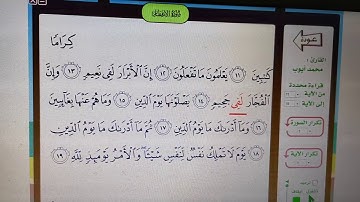 سُورَةُ الِانفِطَارِ
عودة
القارئ :
محمد أيوب
قراءة محددة
من الآية
إلى الآية
تكرار السورة
تكرار الآية
كِرَامًا
كَٰتِبِينَ ١١ يَعْلَمُونَ مَا تَفْعَلُونَ ١٢ إِنَّ الْأَبْرَارَ لَفِى نَعِيمٍ ١٣ وَإِنَّ
الْفُجَّارَ لَفِى جَحِيمٍ ١٤ يَصْلَوْنَهَا يَوْمَ الدِّينِ ١٥ وَمَا هُمْ عَنْهَا بِغَآئِبِينَ
١٦ وَمَآ أَدْرَىٰكَ مَا يَوْمُ الدِّينِ ١٧ ثُمَّ مَآ أَدْرَىٰكَ مَا يَوْمُ الدِّينِ
١٨ يَوْمَ لَا تَمْلِكُ نَفْسٌ لِّنَفْسٍ شَيْـًٔا وَالْأَمْرُ يَوْمَئِذٍ لِّلَّهِ ١٩